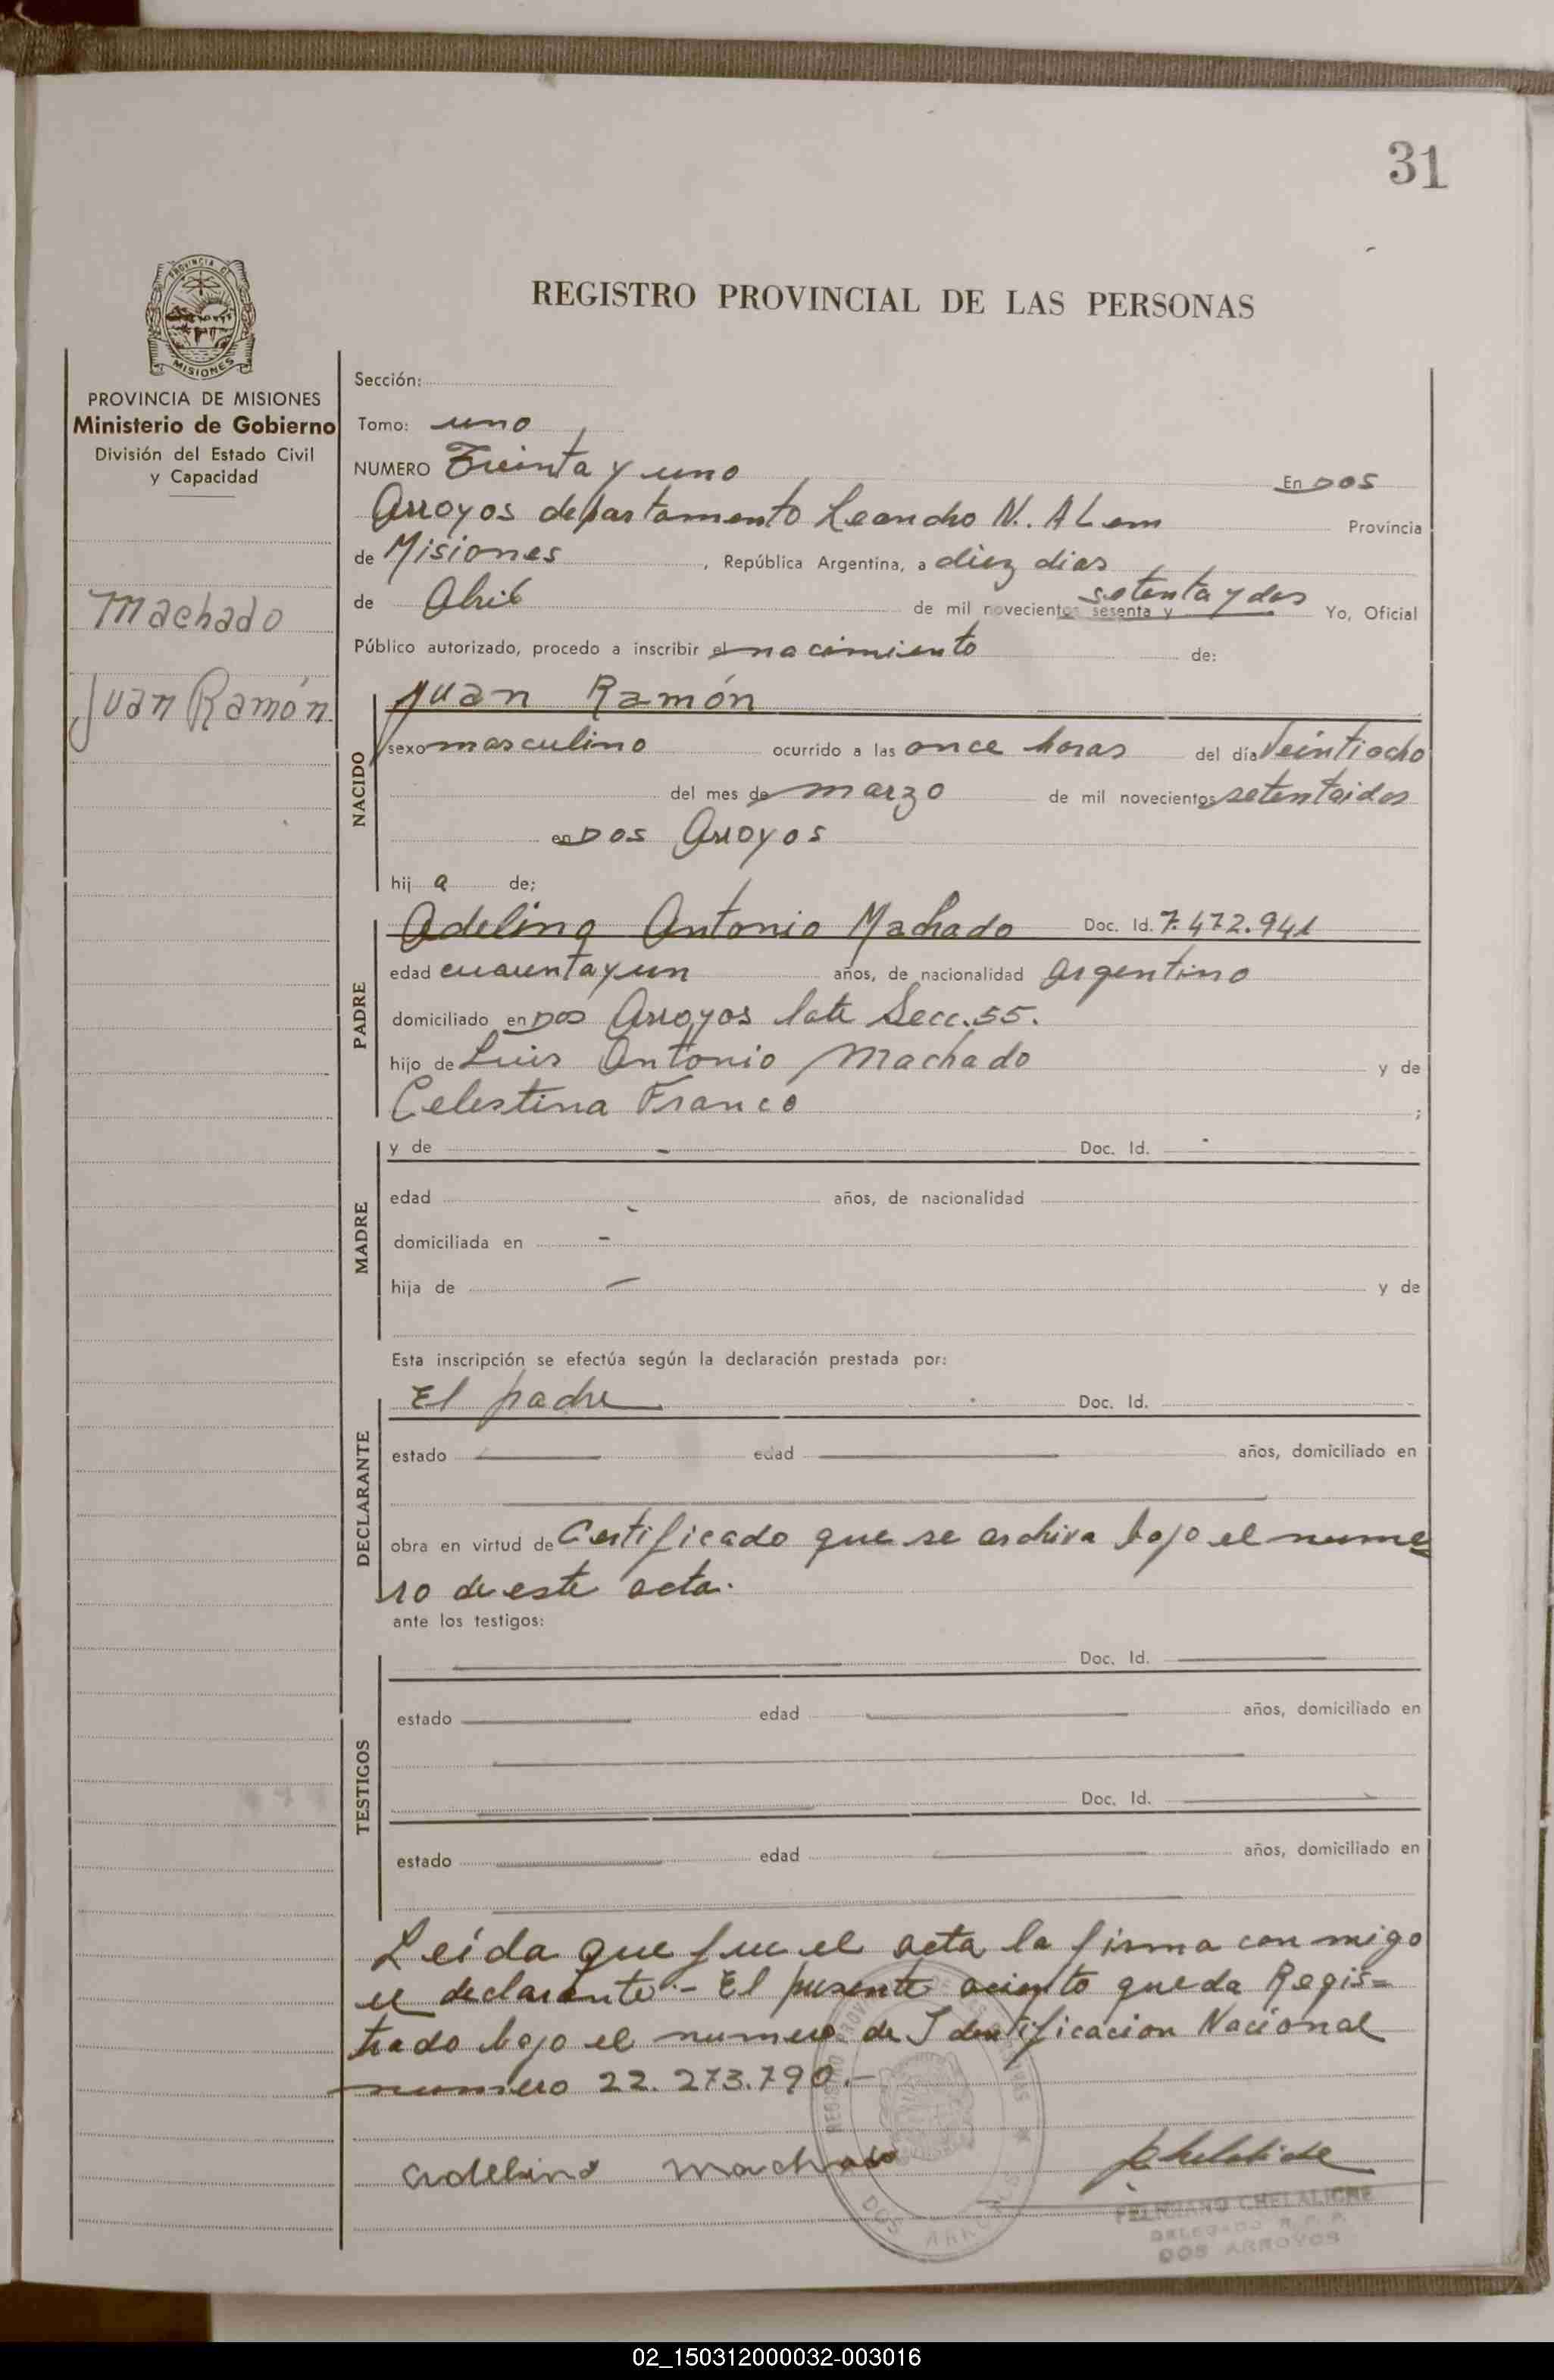 31
PROVINCIA DE
MISIONES
REGISTRO PROVINCIAL DE LAS PERSONAS
PROVINCIA DE MISIONES
Ministerio de Gobierno
División del Estado Civil
y Capacidad
Machado
Juan Ramón
Sección:
Tomo: uno
NUMERO Treinta y uno En DOS
Arroyos departamento Leandro N. ALem Provincia
de Misiones, República Argentina, a diez dias
de Abril de mil novecientos sesenta y setenta y dos Yo, Oficial
Público autorizado, procedo a inscribir el nacimiento de:
NACIDO
Juan Ramón
sexo masculino ocurrido a las once horas del día Veintiocho
del mes de marzo de mil novecientos setentaidos
en DOS Arroyos
hij a de;
PADRE
Adelino Antonio Machado Doc. Id. 7.472.941
edad cuarenta y un años, de nacionalidad argentino
domiciliado en Dos Arroyos lote Secc. 55.
hijo de Luis Antonio Machado y de
Celestina Franco ;
MADRE
y de - Doc. Id. -
edad - años, de nacionalidad
domiciliada en -
hija de - y de
Esta inscripción se efectúa según la declaración prestada por:
DECLARANTE
El padre Doc. Id.
estado edad años, domiciliado en
obra en virtud de Certificado que se archiva bajo el nume=
ro de este acta.
ante los testigos:
TESTIGOS
Doc. Id.
estado edad años, domiciliado en
Doc. Id.
estado edad años, domiciliado en
Leída que fue el acta la firma con migo
el declarante.- El presente aciento queda Regis=
trado bajo el numero de Identificacion Nacional
numero 22.273.790.-
Adelino Machado
FELICIANO CHELALICHE
DELEGADO R.P.P.
DOS ARROYOS
REGISTRO PROV
DOS ARROYOS
02_150312000032-003016